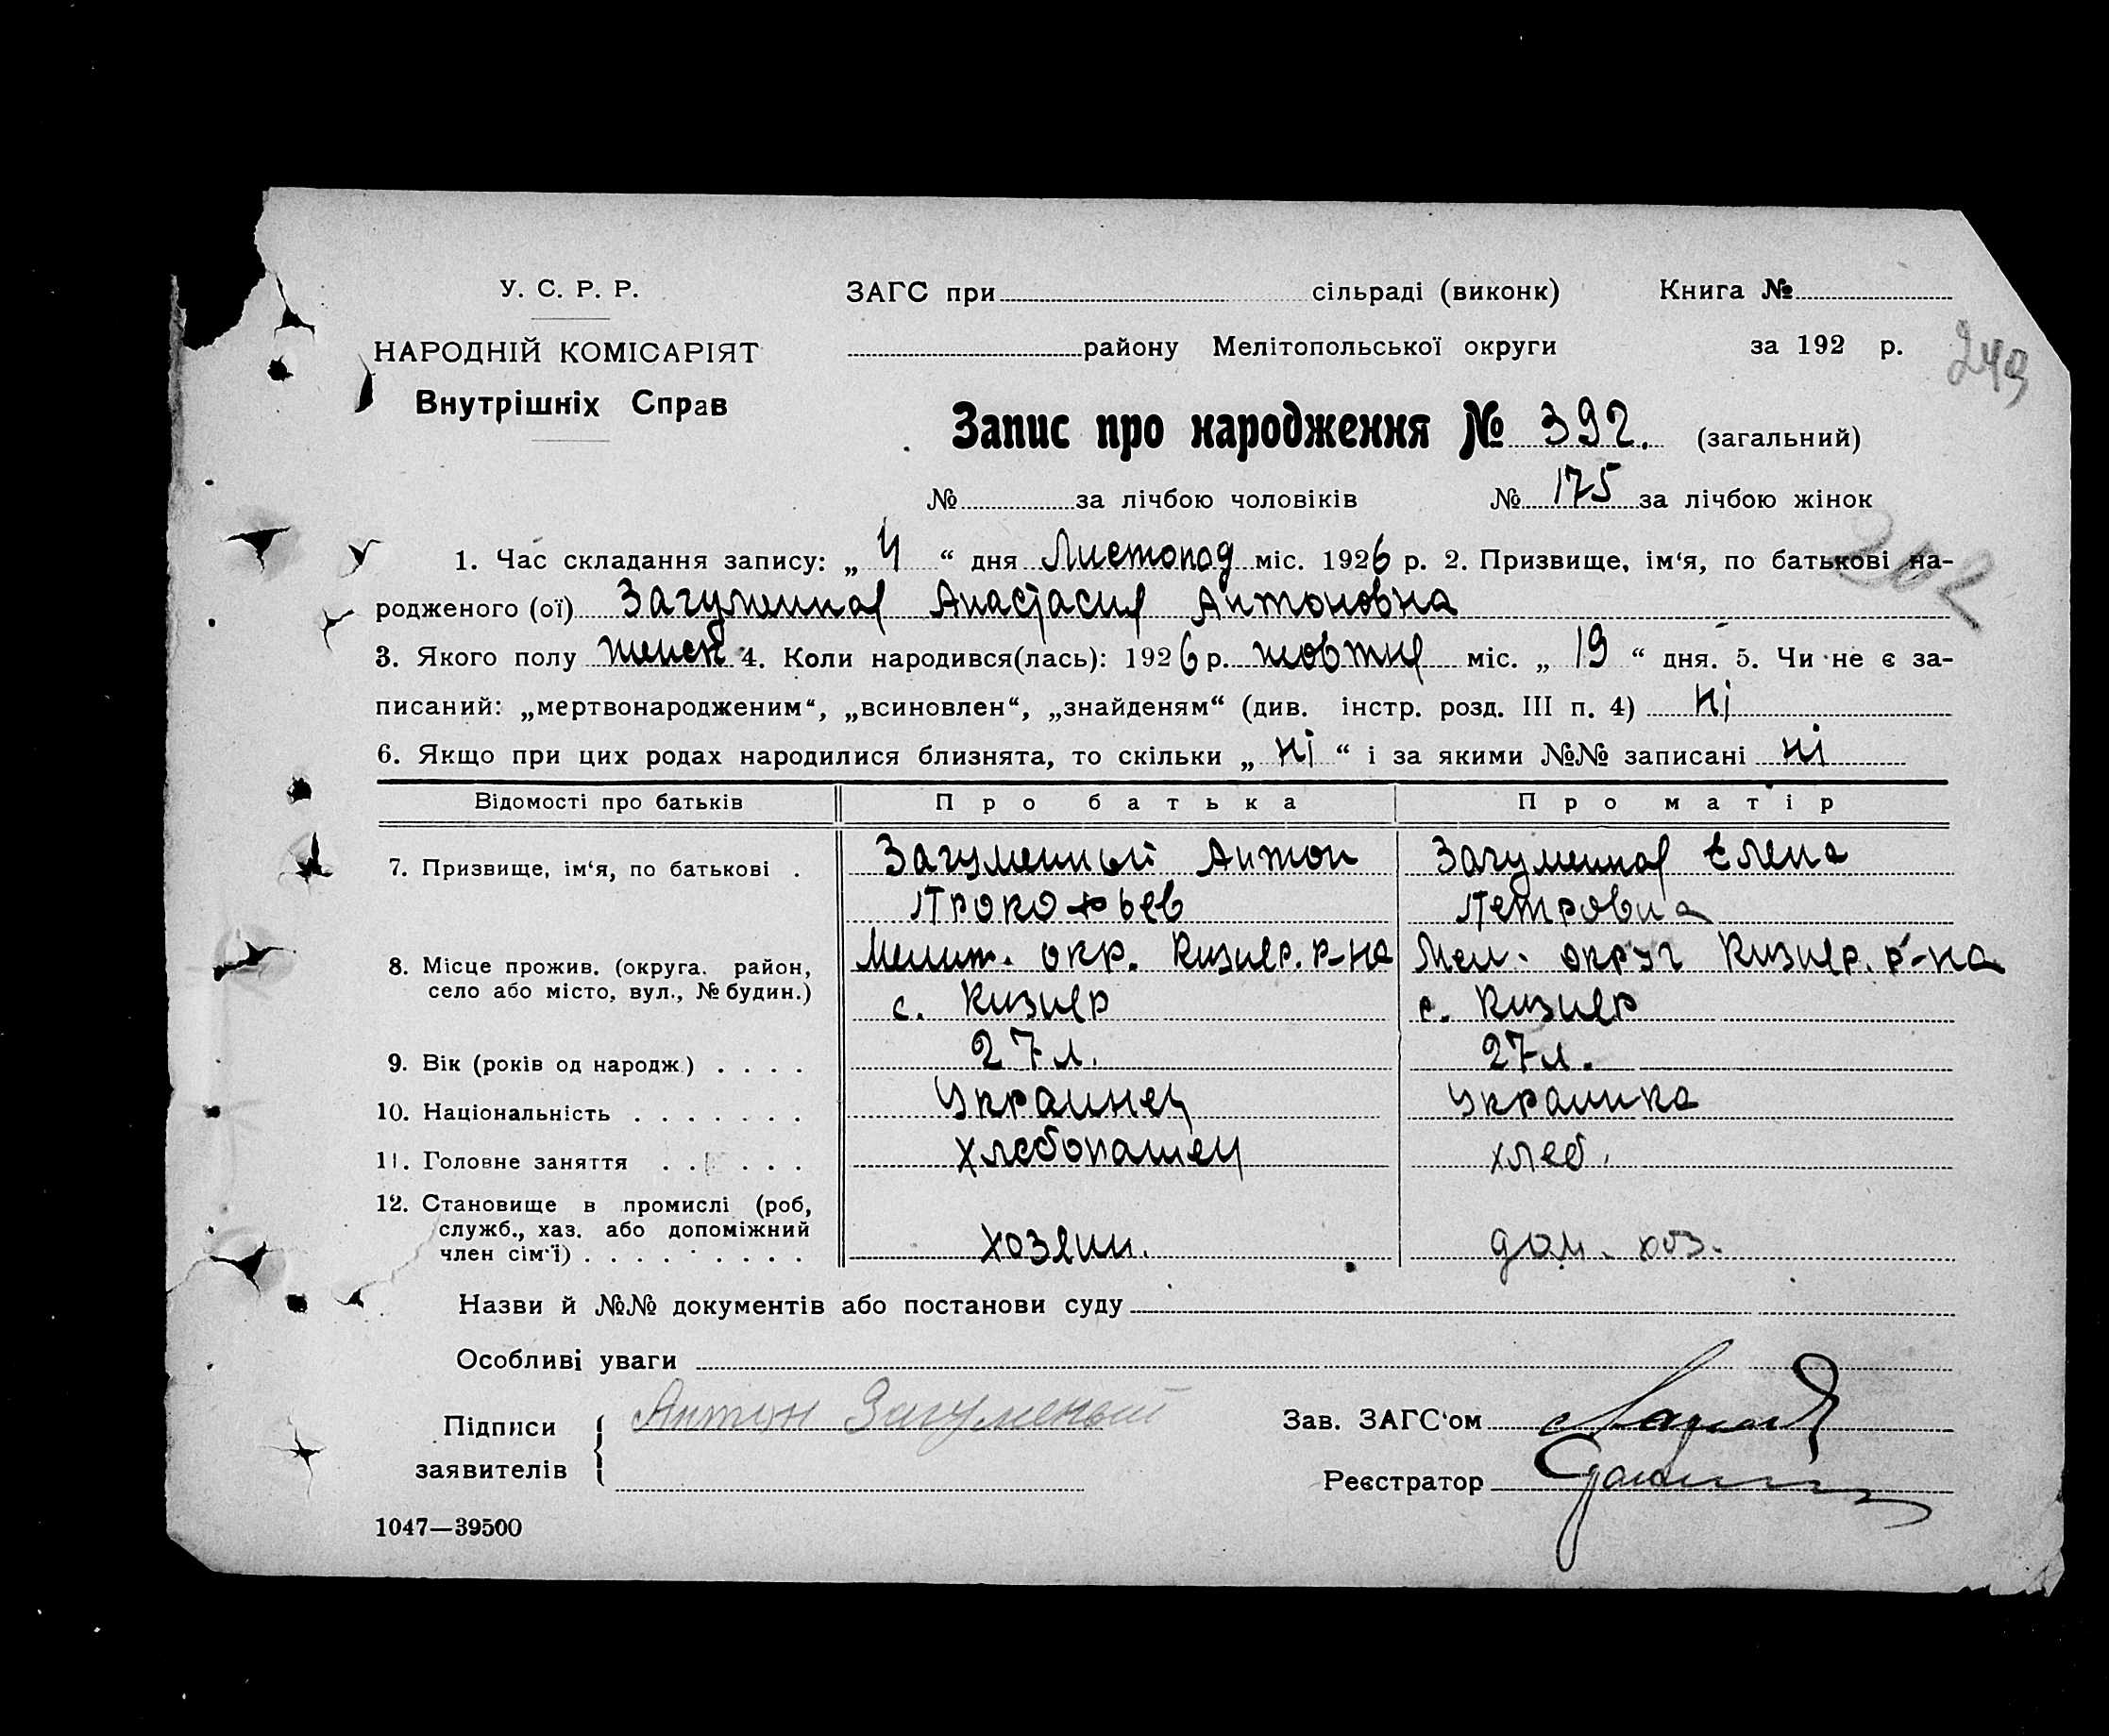 У. С. Р. Р.
НАРОДНІЙ КОМІСАРІЯТ
Внутрішніх Справ
ЗАГС при сільраді (виконк) Книга №
району Мелітопольської округи за 192 р.
249
Запис про народження № 392. (загальний)
№ за лічбою чоловіків № 175 за лічбою жінок
202
1. Час складання запису: „ 4 “ дня Листопад міс. 1926 р. 2. Призвище, ім‘я, по батькові на-
родженого (ої) Загуменная Анастасия Антоновна
3. Якого полу женск 4. Коли народився(лась): 1926 р. жовтня міс. „ 19 “ дня. 5. Чи не є за-
писаний: „мертвонародженим“, „всиновлен“, „знайденям“ (див. інстр. розд. III п. 4) ні
6. Якщо при цих родах народилися близнята, то скільки „ ні “ і за якими №№ записані ні
Відомості про батьків Про батька Про матір
7. Призвище, ім‘я, по батькові . Загуменный Антон Загуменная Елена
Прокофьев Петровна
8. Місце прожив. (округа, район, Мелит. окр. Кизияр. р-на Мел. округ Кизияр. р-на
село або місто, вул., № будин.) с. Кизияр с. Кизияр
9. Вік (років од народж.) . . . . 27 л. 27 л.
10. Національність . . . . . . . Украинец Украинка
11. Головне заняття . . . . . . Хлебопашец хлеб.
12. Становище в промислі (роб,
служб., хаз. або допоміжний
член сім‘ї) . . . . . . . . . хозяин. дом. хоз.
Назви й №№ документів або постанови суду
Особливі уваги
Підписи заявителів Антон Загуменый
Зав. ЗАГС‘ом
Реєстратор
1047—39500